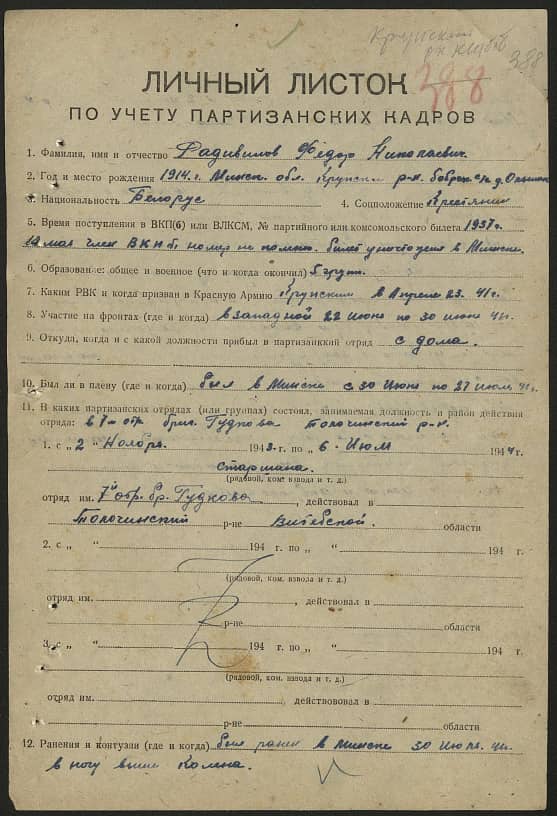 Крупский
388
388
ЛИЧНЫЙ ЛИСТОК
ПО УЧЕТУ ПАРТИЗАНСКИХ КАДРОВ
1. Фамилия, имя и отчество Радивилов Федор Николаевич.
2. Год и место рождения 1914 г. Минск. обл. Крупский р-н. Бобрск с/с д.
3. Национальность Белорус 4. Соцположение Крестянин
5. Время поступления в ВКП(б) или ВЛКСМ, № партийного или комсомольского билета 1937 г.
12 мая член ВКПб номер не помню. билет уничтожен в Минске.
6. Образование: общее и военное (что и когда окончил) 5 групп.
7. Каким РВК и когда призван в Красную Армию Крупским в Апреле 23. 41 г.
8. Участие на фронтах (где и когда) в западной 22 июня по 30 июня 41 г.
9. Откуда, когда и с какой должности прибыл в партизанский отряд с дома.
10. Был ли в плену (где и когда) был в Минске с 30 Июня по 27 июля 41 г.
11. В каких партизанских отрядах (или группах) состоял, занимаемая должность и район действия
отряда: в 7м отр. бриг. Гудкова Толочинский р-н.
1. с „ 2 “ Ноября. 1943 г. по „ 6 “ Июля 1944 г.
старшина.
(рядовой, ком. взвода и т. д.)
отряд им. 7й отр. бр. Гудкова, действовал в
Толочинский р-не Витебской. области
2. с „ “ 194 г. по „ “ 194 г.
(рядовой, ком. взвода и т. д.)
отряд им. , действовал в
р-не области
3. с „ “ 194 г. по „ “ 194 г.
(рядовой, ком. взвода и т. д.)
отряд им. , действововал в
р-не области
12. Ранения и контузии (где и когда) был ранен в Минске 30 Июня. 41 г.
в ногу выше колена.